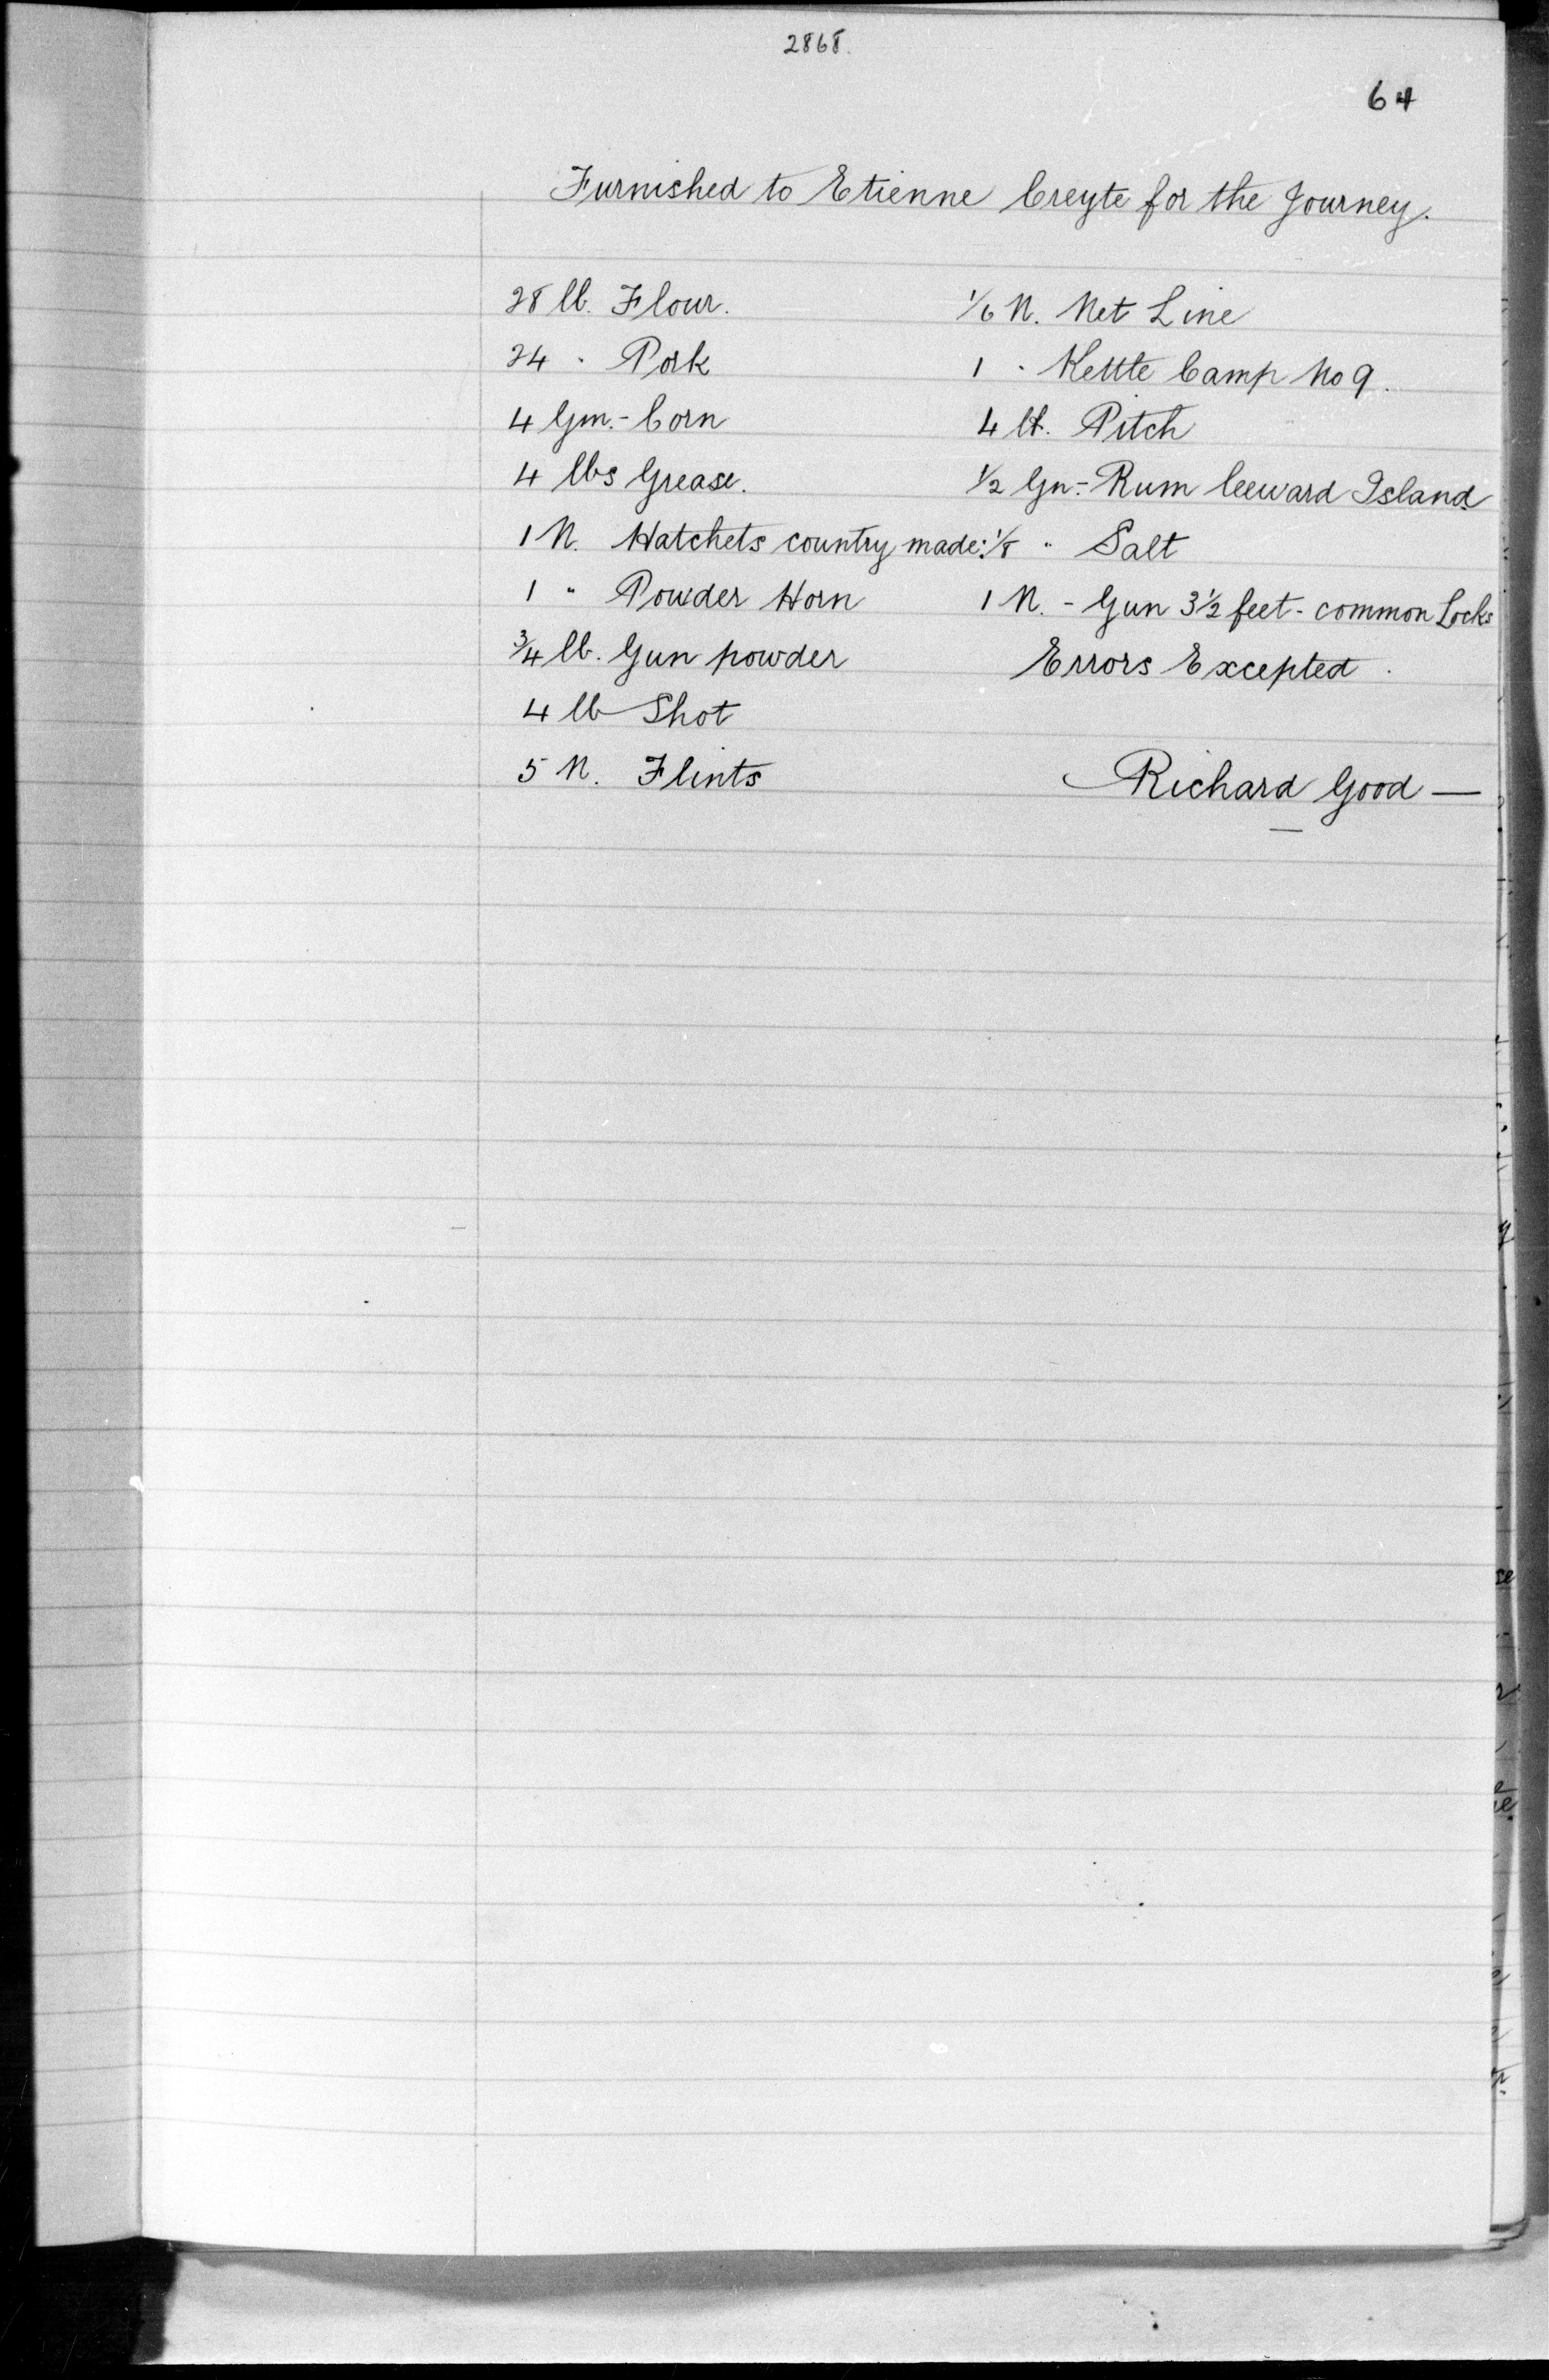 2868.
64
Furnished to Etienne Creyte for the Journey.
28 lb. Flour.
24 " Pork
4 Gm.- Corn
4 lbs Grease.
1 N. Hatchets country made.
1 " Powder Horn
3/4 lb. Gun powder
4 lb Shot
5 N. Flints
1/6 N. Net Line
1 " Kettle Camp No 9.
4 lb. Pitch
1/2 Gn.- Rum Leeward Island
1/8 " Salt
1 N. - Gun 3 1/2 feet - common Locks
Errors Excepted.
Richard Good —